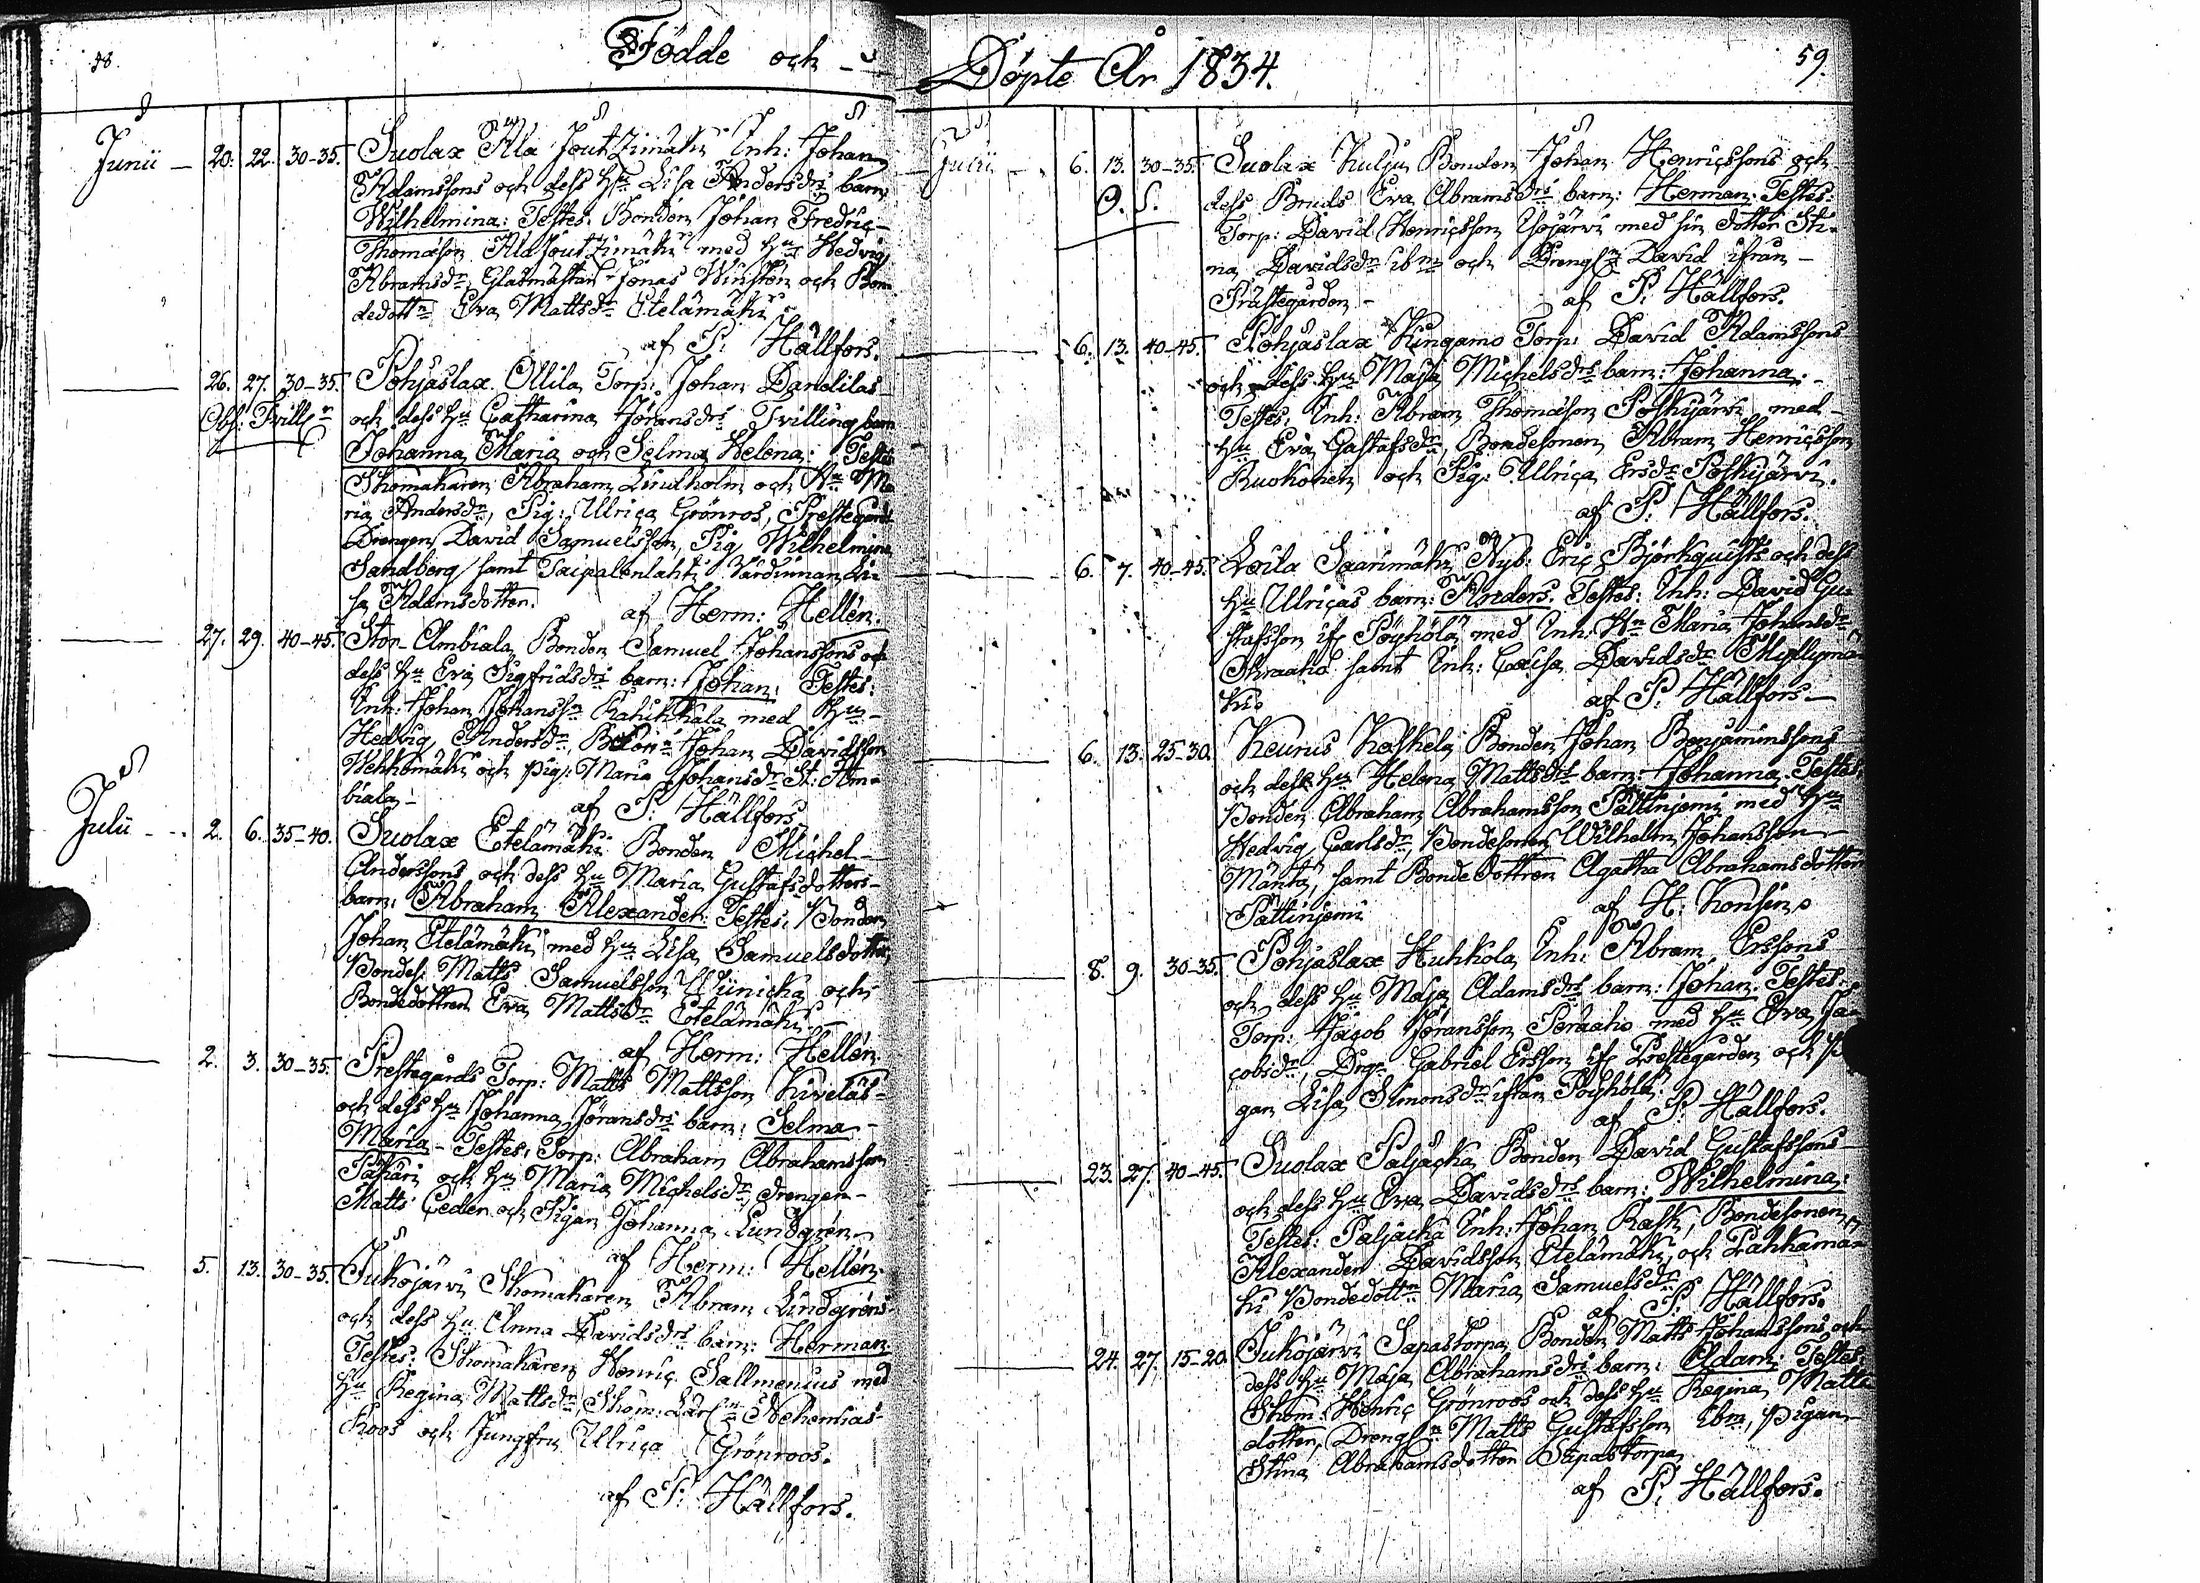 58.
Födde och
Junii 20. 22. 30-35. Suolax Ala Joutzimäki Inh: Johan
Adamssons och dess Hu Lisa Andersdrs barn
Wilhelmina: Testes: Bonden Johan Fredric
Thomasson Ala Joutzimäki med Hu Hedvig
Abramsdr, Glasmästar Jonas Winsten och Bon-
dedottn Eva Mattsdr Etelämäki
af P. Hällfors.
26. 27. 30-35. Pohjaslax Ollila Torp: Johan Danelilas
Obs: Trill och dess Hu Catharina Jöransdrs Tvilling barn
Johanna Maria och Selma Helena: Testes
Skomakaren Abraham Lindholm och Hu Ma
ria Andersdr, Pig: Ulrica Grönros, Prestegårds
Drengen David Samuelsson, Pig Wilhelmina
Sandberg samt Taipalenlahti Värdinnan Li-
sa Adamsdotter.
af Herm: Hellén.
27. 29. 40-45. Stor Ambiala Bonden Samuel Johanssons och
dess Hu Eva Sigfridsdrs barn: Johan: Testes:
Inh: Johan Johanssn Kahikkala med Hu
Hedvig Andersdr, Johan Davidsson
Wehkomäki och Pig: Maria Johansdr St: Am-
biala
af P. Hällfors.
Julii 2. 6. 35-40. Suolax Etelämäki Bonden Michel
Anderssons och dess Hu Maria Gustafsdotters
barn: Abraham Alexander: Testes: Bonden
Johan Etelämäki med Hu Lisa Samuelsdotter
Bondes: Matts Samuelsson Wiinicka och
Bondedottren Eva Mattsdr Etelämäki
af Herm: Hellén.
2. 3. 30-35. Prestegårds Torp: Matts Mattsson Kiveläs
och dess Hu Johanna Jöransdrs barn: Selma
Maria - Testes: Torp: Abraham Abrahamsson
Pakari och Hu Maria Michelsdr, drengen
Matts Ceder och Pigan Johanna Lundgrén
af Herm: Hellén.
5. 13. 30-35. Jukojärvi Skomakaren Abram Lindgréns
och dess Hu Anna Davidsdrs barn: Herman
Testes: Skomakaren Henric Sallmenius med
Hu Regina Mattsdr, Skom: Lärln Nehemias
Roos och Jungfru Ulrica Grönroos.
af P. Hällfors.
Döpte År 1834.
59.
Julii 6. 13. 30-35. Suolax Kulju Bonden Johan Henricssons och
O. S. dess Bruds Eva Abramsdrs barn: Herman: Testes:
Torp: David Henricsson Isojärvi med sin dotter Sti-
na Davidsdr ibm och Drengn David ifrån
Prästegården
af P. Hällfors.
6. 13. 40-45. Pohjaslax Kingamo Torp: David Adamssons
och dess Hu Maja Michelsdrs barn: Johanna:
Testes: Inh: Abram Thomasson Poskijärvi med
Hu Eva Gustafsdr, Bondesonen Abram Henricsson
Ruokonen och Pig: Ulrica Ersdr Poskijärvi.
af P. Hällfors.
6. 7. 40-45. Loila Saarimäki Nyb: Eric Björkquists och dess
Hu Ulricas barn: Anders: Testes: Inh: David Gu-
stafsson if: Pöyhölä med Inh: Hu Maria Johansdr
samt Inh: Caisa Davidsdr Myllymä-
ki.
af P. Hällfors
6. 13. 25-30. Keurus Kaskela Bonden Johan Benjaminssons
och dess Hu Helena Mattsdrs barn: Johanna. Testes:
Bonden Abraham Abrahamsson Pättinjemi med Hu
Hedvig Carlsdr, Bondesonen Wilhelm Johansson
Mäntä, samt Bonde Dottren Agatha Abrahamsdotter
Pättinjemi
af H. Konsin.
8. 9. 30-35. Pohjaslax Huhkola Inh: Abram Erssons
och dess Hu Maja Adamsdrs barn: Johan: Testes:
Torp: Jacob Jöransson Peräaho med Hu Eva Ja-
cobsdr, Drg: Gabriel Ersson if: Prestegården och Pi
gan Lisa Simonsdr ifrån Pöyhölä.
af P. Hällfors.
23. 27. 40-45. Suolax Paljacka Bonden David Gustafssons
och dess Hu Eva Davidsdrs barn: Wilhelmina:
Testes: Paljacka Inh: Johan Rask, Bondesonen
Alexander Davidsson Etelämäki, och Pahkamä-
ki Bondedottn Maria Samuelsdr
af P. Hällfors.
24. 27. 15-20. Jukojärvi Sapastorpa Bonden Matts Johanssons och
dess Hu Maja Abrahamsdrs barn: Adam: Testes:
Skom: Henric Grönroos och dess Hu Regina Matts
dotter, Drengn Matts Gustafsson ibm, Pigan
Stina Abrahamsdotter Sapastorpa
af P. Hällfors.